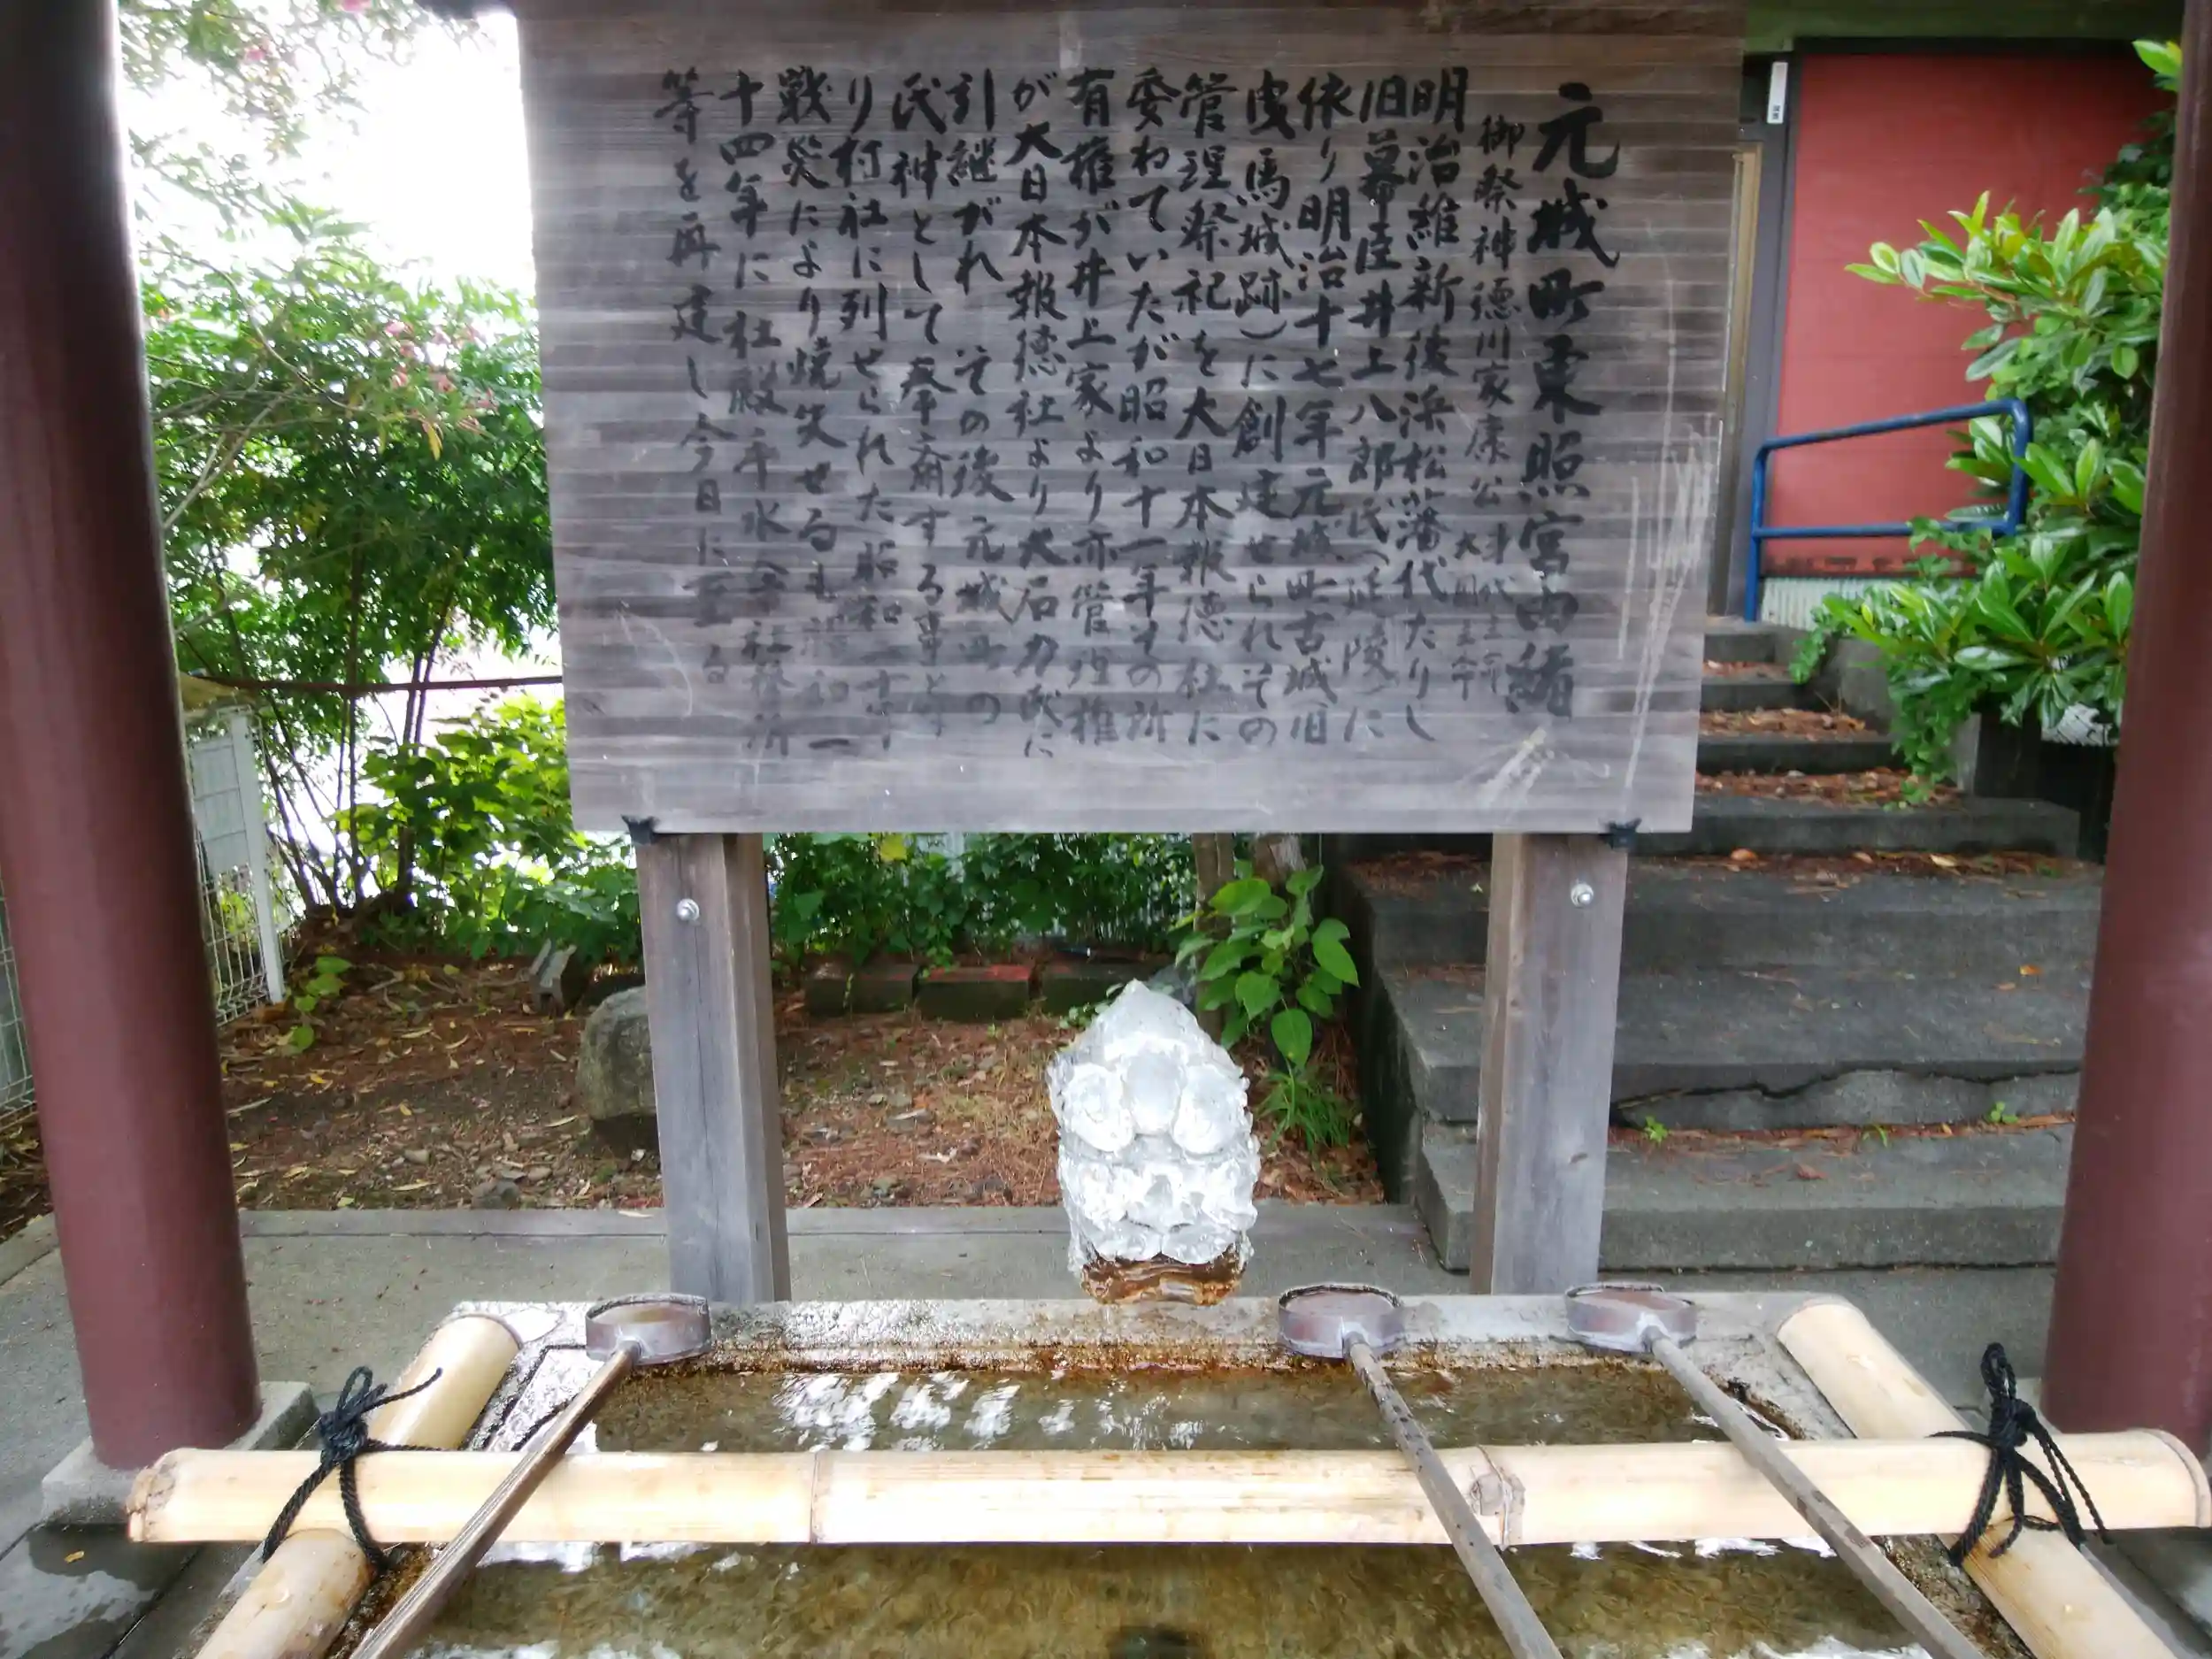 元城町東照宮由緒
御祭神徳川家康公
大国主命
明治維新後浜松藩代たりし
旧幕臣井上八郎氏（延陵）に
依り明治十七年元城町古城旧
曳馬城跡）に創建せられその
管理祭祀を大日本報徳社に
委わていたが昭和十一年その所
有権が井上家より亦管理権
が大日本報徳社より大石力氏に
引継がれ その後元城町の
氏神として奉斎する事とな
り村社に列せられた昭和二十年
戦災により焼失せるも昭和三
十四年に社殿手水舎社務所
等を再建し今日に至る